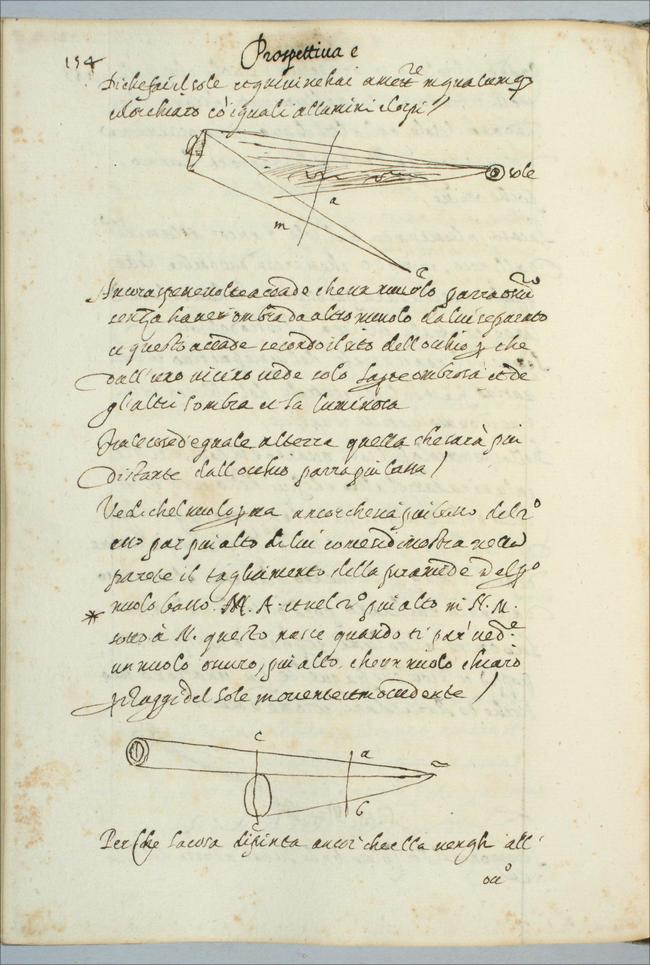 154
Prospettiua e
Di che fai il sole et quiui ne hai a mett.re in qualunq
clor chiaro cō iquali allumini i corpi
sole
a
m
Ancora spese uolte accade che un nuuolo parra oscu.ro
senza hauer ombra da altro nuuolo da lui separato
et questo accade secondo il sito dell occhio che
dall uno uicino uede solo la p.te ombrosa et de
gl altri l ombra et la luminosa
Fra le cose d eguale alterza quella che sarà piu
distante dall occhio parra piu bassa
Vedi che l nuuolo p.mo ancor che sia piu basso del 2.o
esso par piu alto di lui come si dimostra nella
parete il tagliamento della piramide del p.o
* nuolo basso M. A. et nel 2.o piu alto in N. M.
sotto à N. questo nasce quando ti par ued.e
un nuolo oscuro, piu alto che un nuolo chiaro
p i raggi del sole in oriente et in occidente
c
a
c
b
Per che la cosa dipinta ancor che ella uengh all
oc.o